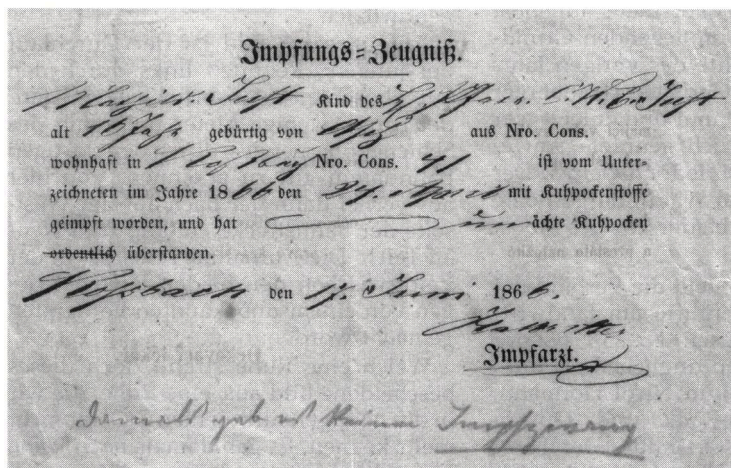 Impfungs-Zeugniß.
Kind des
alt 16 Jahr gebürtig von Asch aus Nro. Cons.
wohnhaft in Roßbach Nro. Cons. 41 ist vom Unter-
zeichneten im Jahre 1866 den 24. April mit Kuhpockenstoffe
geimpft worden, und hat unächte Kuhpocken
ordentlich überstanden.
Rossbach den 17. Juni 1866.
Impfarzt.
damals gab es keinen Impfzwang